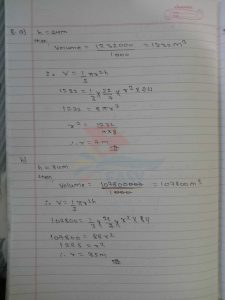 8. a) h = 24m
then,
Volume = 1232000 / 1000 = 1232 m³
∴ V = 1/3 πr²h
1232 = 1/3 × 22/7 × r² × 24
1232 = 8πr²
r² = 1232 / π×8
∴ r = 7m
b)
h = 84m
then,
Volume = 107800000 / 1000 = 107800 m³
∴ V = 1/3 πr²h
107800 = 1/3 × 22/7 × r² × 84
107800 = 88r²
1225 = r²
∴ r = 35m